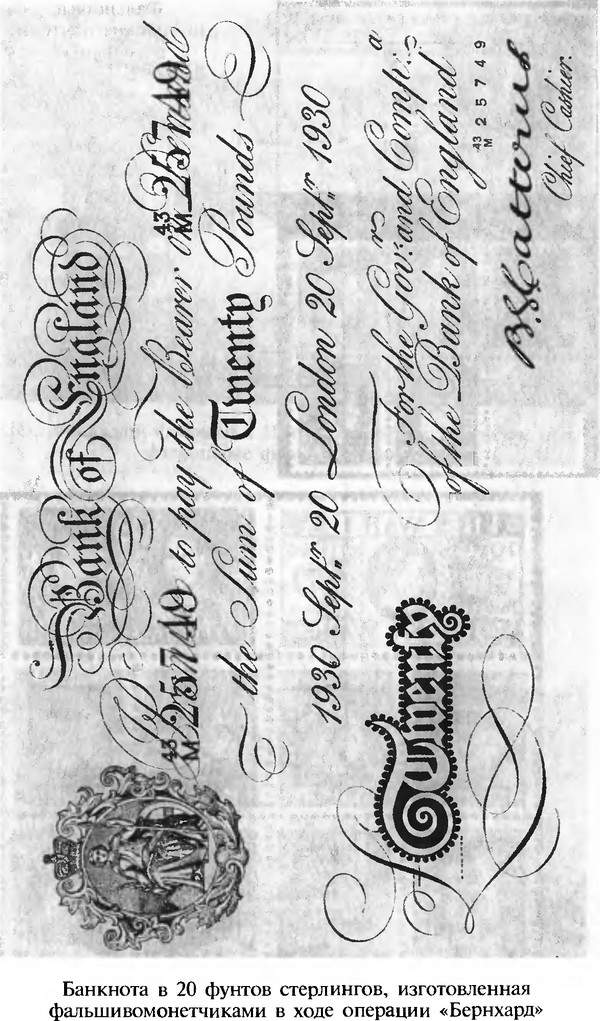 Bank of England
43
M 25749
43
M 25749
to pay the Bearer on Demand
the Sum of Twenty Pounds
1930 Septr. 20 London 20 Septr. 1930
For the Govr. and Compa.
of the Bank of England
43
M 25749
Twenty
Chief Cashier.
Банкнота в 20 фунтов стерлингов, изготовленная
фальшивомонетчиками в ходе операции «Бернхард»